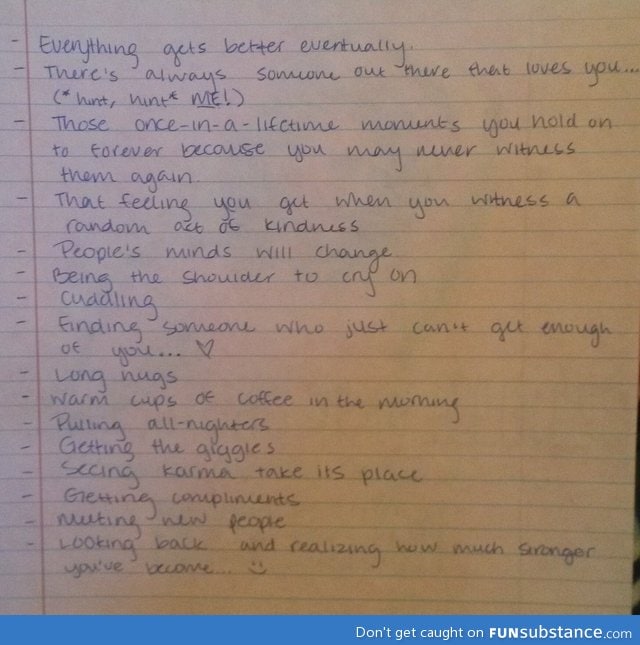 - Everything gets better eventually.
- There's always someone out there that loves you...
(*hint, hint* ME!)
- Those once-in-a-lifetime moments you hold on
to forever because you may never witness
them again.
- That feeling you get when you witness a
random act of kindness
- People's minds will change.
- Being the shoulder to cry on
- Cuddling
- Finding someone who just can't get enough
of you... ♡
- Long hugs
- Warm cups of coffee in the morning
- Pulling all-nighters
- Getting the giggles
- Seeing karma take its place
- Getting compliments
- Meeting new people
- Looking back and realizing how much stronger
you've become... :)
Don't get caught on FUNsubstance.com